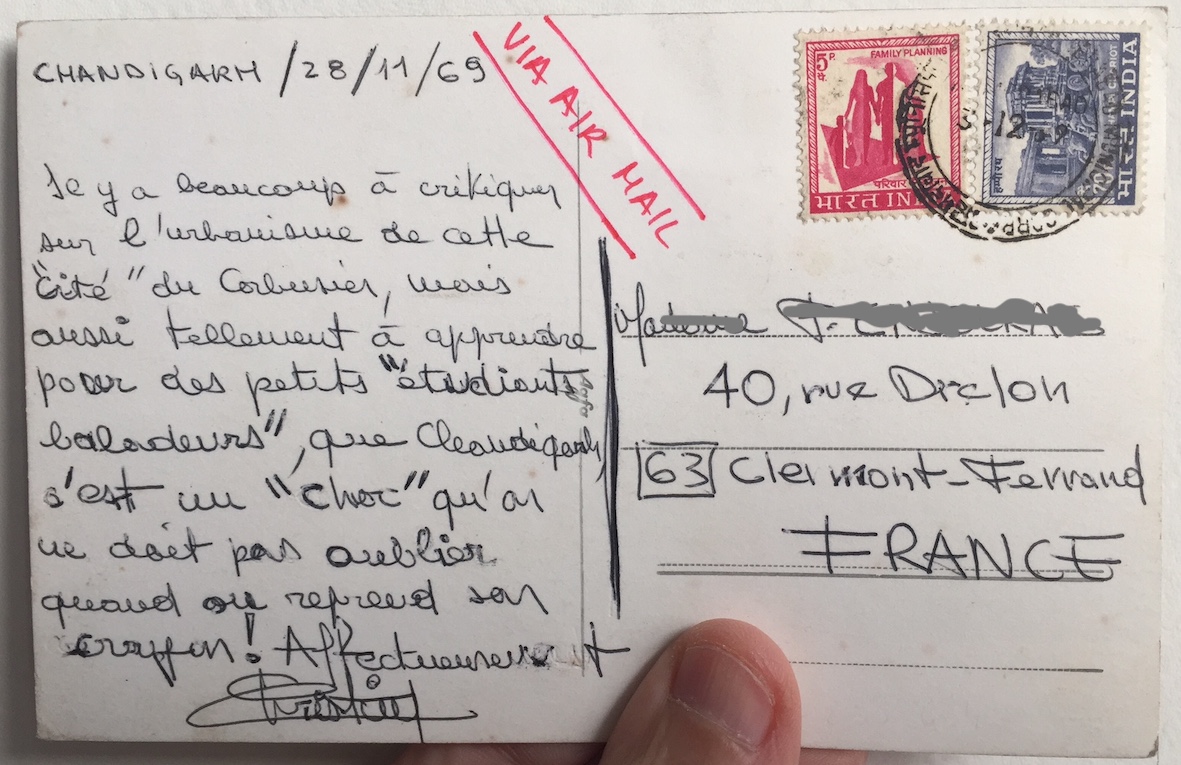 CHANDIGARH / 28 / 11 / 69
VIA AIR MAIL
5 P.
FAMILY PLANNING
परिवार
भारत INDIA
भारत INDIA
Il y a beaucoup à critiquer
sur l'urbanisme de cette
"cité" du Corbusier, mais
aussi tellement à apprendre
pour des petits "étudiants
baladeurs", que Chandigarh,
c'est un "choc" qu'on
ne doit pas oublier
quand on reprend son
crayon! Affectueusement
Madame
40, rue
63 Clermont-Ferrand
FRANCE